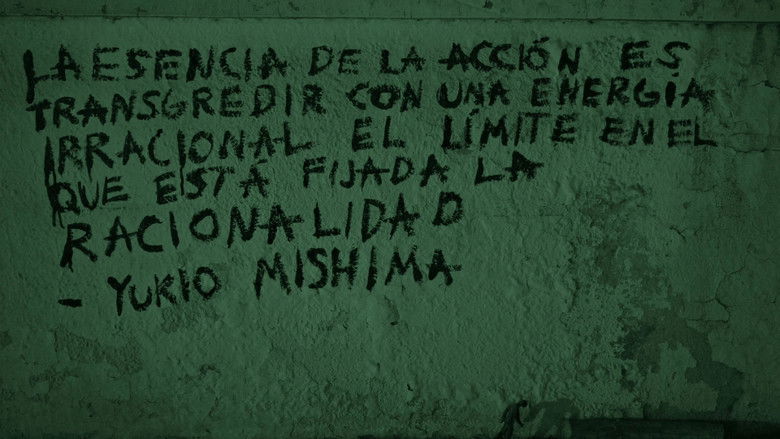 LA ESENCIA DE LA ACCIÓN ES
TRANSGREDIR CON UNA ENERGÍA
IRRACIONAL EL LÍMITE EN EL
QUE ESTÁ FIJADA LA
RACIONALIDAD
- YUKIO MISHIMA